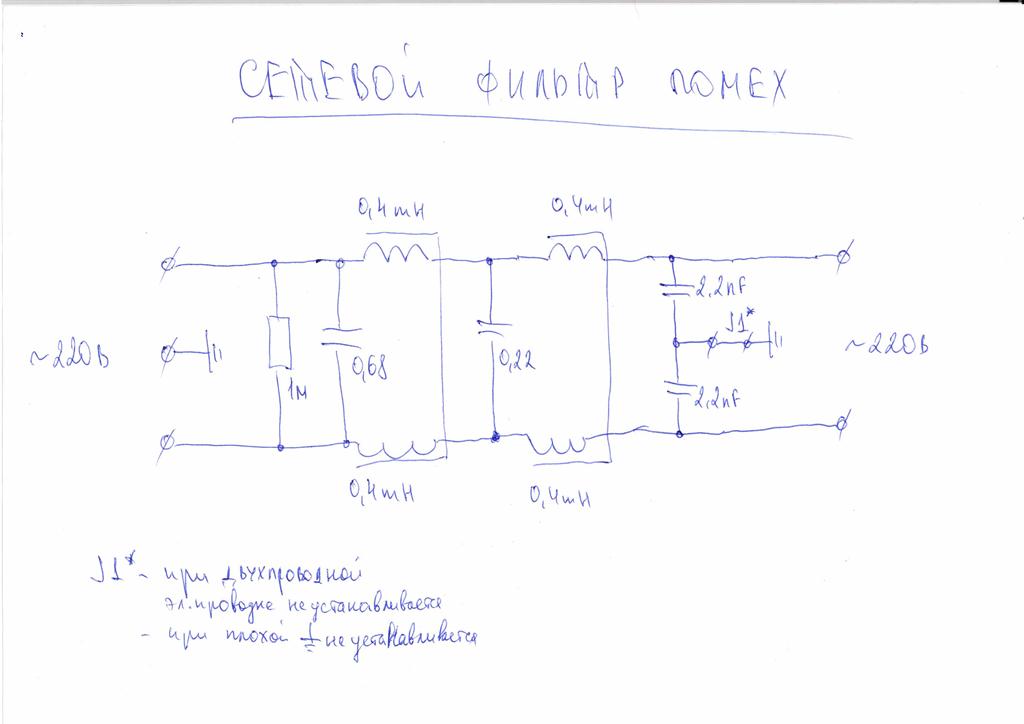 СЕТЕВОЙ ФИЛЬТР ПОМЕХ
0,4mH
0,4mH
2,2nF
J1*
~220В
1М
0,68
0,22
~220В
2,2nF
0,4mH
0,4mH
J1* - при двухпроводной
эл.проводке не устанавливается
- при плохой ⏚ не устанавливается